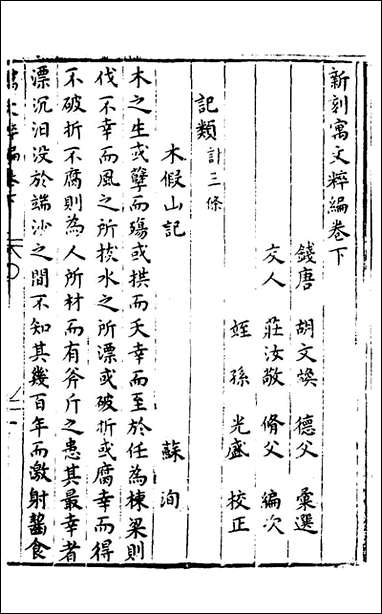 新刻寓文粹編卷下
錢唐 胡文煥 德父 彙選
友人 莊汝敬 脩父 編次
姪孫 光盛 校正
記類計三條
木假山記 蘇洵
木之生或孽而殤或拱而夭幸而至於任為棟梁則
伐不幸而風之所拔水之所漂或破折或腐幸而得
不破折不腐則為人所材而有斧斤之患其最幸者
漂沉汩没於湍沙之間不知其幾百年而激射齧食
寓文粹編卷下